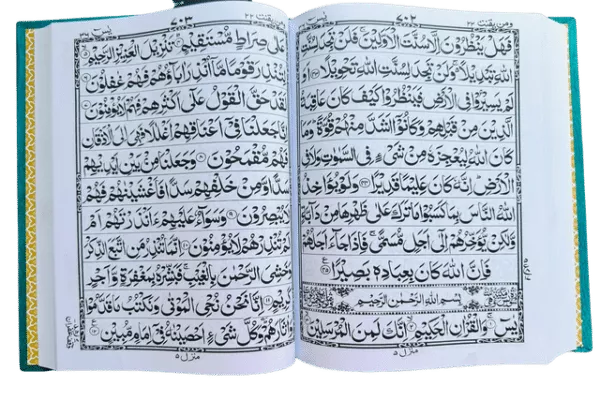 ومن یقنت ۲۲
۷۰۲
فَهَلْ يَنْظُرُوْنَ اِلَّا سُنَّتَ الْاَوَّلِيْنَ ۚ فَلَنْ تَجِدَ لِسُنَّتِ
اللّٰهِ تَبْدِيْلًا ۚ وَلَنْ تَجِدَ لِسُنَّتِ اللّٰهِ تَحْوِيْلًا ۝ اَوَ
لَمْ يَسِيْرُوْا فِى الْاَرْضِ فَيَنْظُرُوْا كَيْفَ كَانَ عَاقِبَةُ
الَّذِيْنَ مِنْ قَبْلِهِمْ وَكَانُوْۤا اَشَدَّ مِنْهُمْ قُوَّةً ۭ وَمَا
كَانَ اللّٰهُ لِيُعْجِزَهٗ مِنْ شَىْءٍ فِى السَّمٰوٰتِ وَلَا فِى
الْاَرْضِ ۭ اِنَّهٗ كَانَ عَلِيْمًا قَدِيْرًا ۝ وَلَوْ يُؤَاخِذُ
اللّٰهُ النَّاسَ بِمَا كَسَبُوْا مَا تَرَكَ عَلٰى ظَهْرِهَا مِنْ دَآبَّةٍ
وَّلٰكِنْ يُّؤَخِّرُهُمْ اِلٰٓى اَجَلٍ مُّسَمًّى ۚ فَاِذَا جَآءَ اَجَلُهُمْ
فَاِنَّ اللّٰهَ كَانَ بِعِبَادِهٖ بَصِيْرًا ۝
بِسْمِ اللّٰهِ الرَّحْمٰنِ الرَّحِيْمِ
يٰسٓ ۝ وَالْقُرْاٰنِ الْحَكِيْمِ ۝ اِنَّكَ لَمِنَ الْمُرْسَلِيْنَ ۝
منزل ۵
۷۰۳
عَلٰى صِرَاطٍ مُّسْتَقِيْمٍ ۝ تَنْزِيْلَ الْعَزِيْزِ الرَّحِيْمِ ۝
لِتُنْذِرَ قَوْمًا مَّاۤ اُنْذِرَ اٰبَآؤُهُمْ فَهُمْ غٰفِلُوْنَ ۝
لَقَدْ حَقَّ الْقَوْلُ عَلٰٓى اَكْثَرِهِمْ فَهُمْ لَا يُؤْمِنُوْنَ ۝
اِنَّا جَعَلْنَا فِىْۤ اَعْنَاقِهِمْ اَغْلٰلًا فَهِىَ اِلَى الْاَذْقَانِ
فَهُمْ مُّقْمَحُوْنَ ۝ وَجَعَلْنَا مِنْۢ بَيْنِ اَيْدِيْهِمْ
سَدًّا وَّمِنْ خَلْفِهِمْ سَدًّا فَاَغْشَيْنٰهُمْ فَهُمْ
لَا يُبْصِرُوْنَ ۝ وَسَوَآءٌ عَلَيْهِمْ ءَاَنْذَرْتَهُمْ اَمْ
لَمْ تُنْذِرْهُمْ لَا يُؤْمِنُوْنَ ۝ اِنَّمَا تُنْذِرُ مَنِ اتَّبَعَ الذِّكْرَ
وَخَشِىَ الرَّحْمٰنَ بِالْغَيْبِ ۚ فَبَشِّرْهُ بِمَغْفِرَةٍ وَّاَجْرٍ
كَرِيْمٍ ۝ اِنَّا نَحْنُ نُحْىِ الْمَوْتٰى وَنَكْتُبُ مَا قَدَّمُوْا
وَاٰثَارَهُمْ ۭ وَكُلَّ شَىْءٍ اَحْصَيْنٰهُ فِىْۤ اِمَامٍ مُّبِيْنٍ ۝
منزل ۵